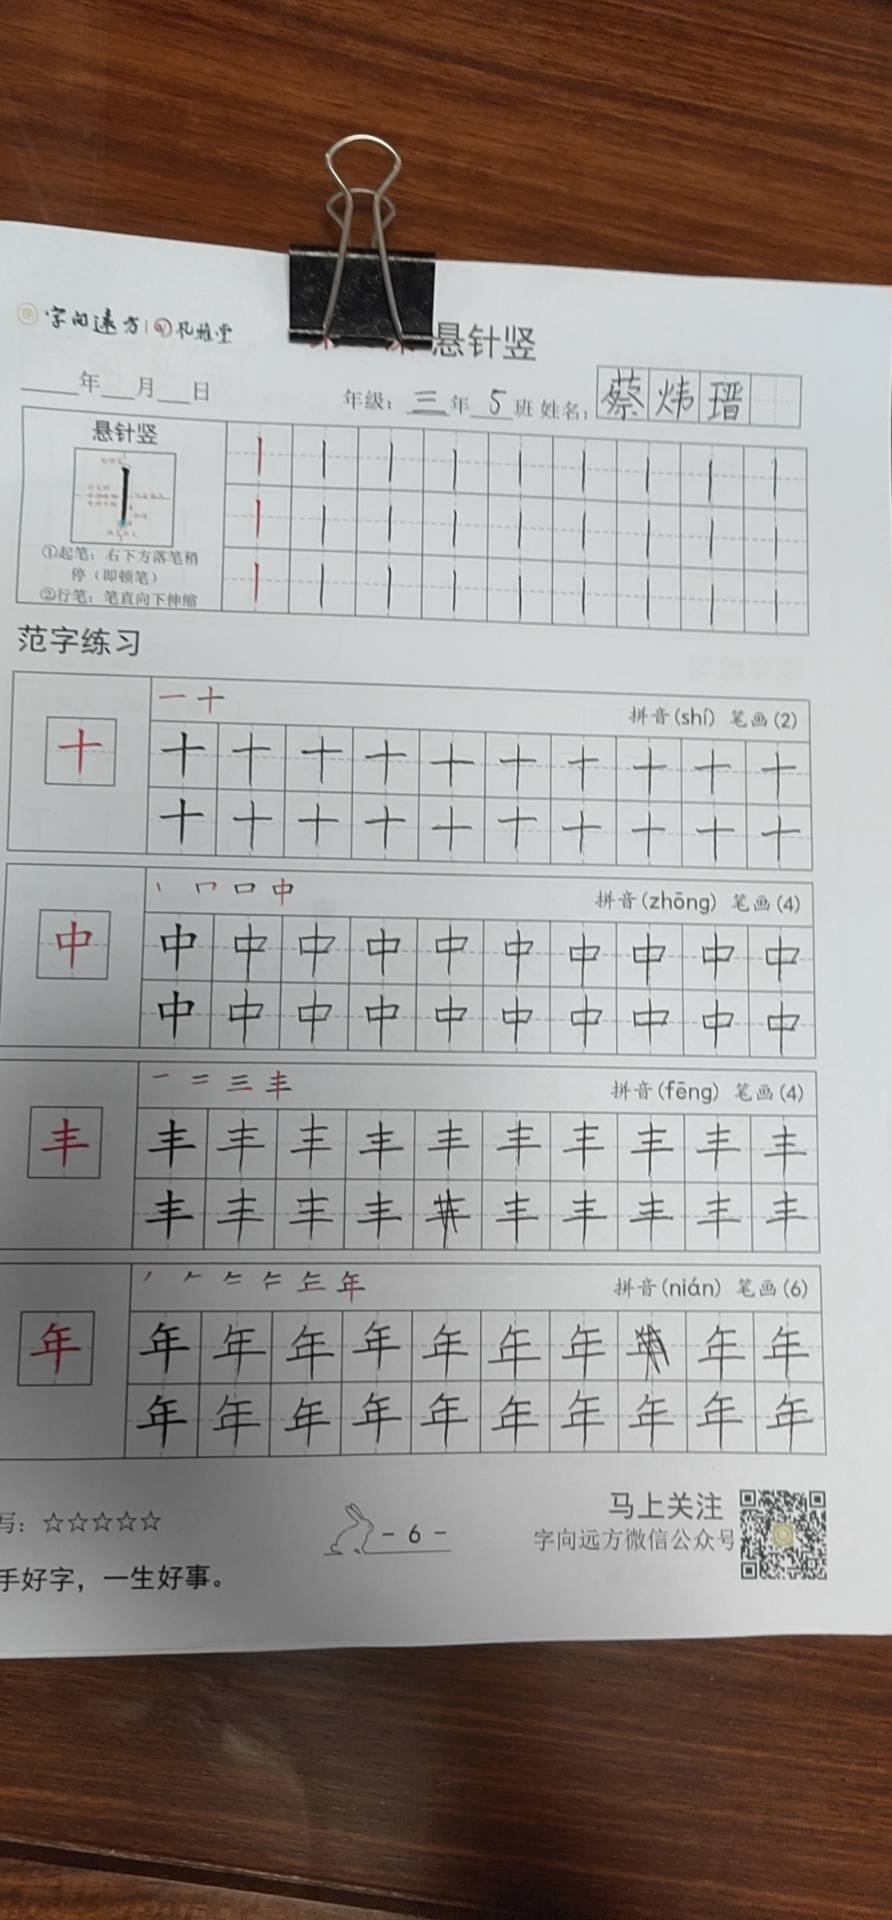 字向远方 孔雅堂
悬针竖
年 月 日 年级: 三 年 5 班 姓名: 蔡炜瑨
悬针竖
①起笔：右下方落笔稍
停（即顿笔）
②行笔：笔直向下伸缩
范字练习
一 十 拼音(shí) 笔画(2)
十 十 十 十 十 十 十 十 十 十 十
十 十 十 十 十 十 十 十 十 十
丨 口 中 拼音(zhōng) 笔画(4)
中 中 中 中 中 中 中 中 中 中 中
中 中 中 中 中 中 中 中 中 中
一 二 三 丰 拼音(fēng) 笔画(4)
丰 丰 丰 丰 丰 丰 丰 丰 丰 丰 丰
丰 丰 丰 丰 丰 丰 丰 丰 丰
年 拼音(nián) 笔画(6)
年 年 年 年 年 年 年 年 年 年
年 年 年 年 年 年 年 年 年 年
写：☆☆☆☆☆
- 6 -
马上关注
字向远方微信公众号
手好字，一生好事。